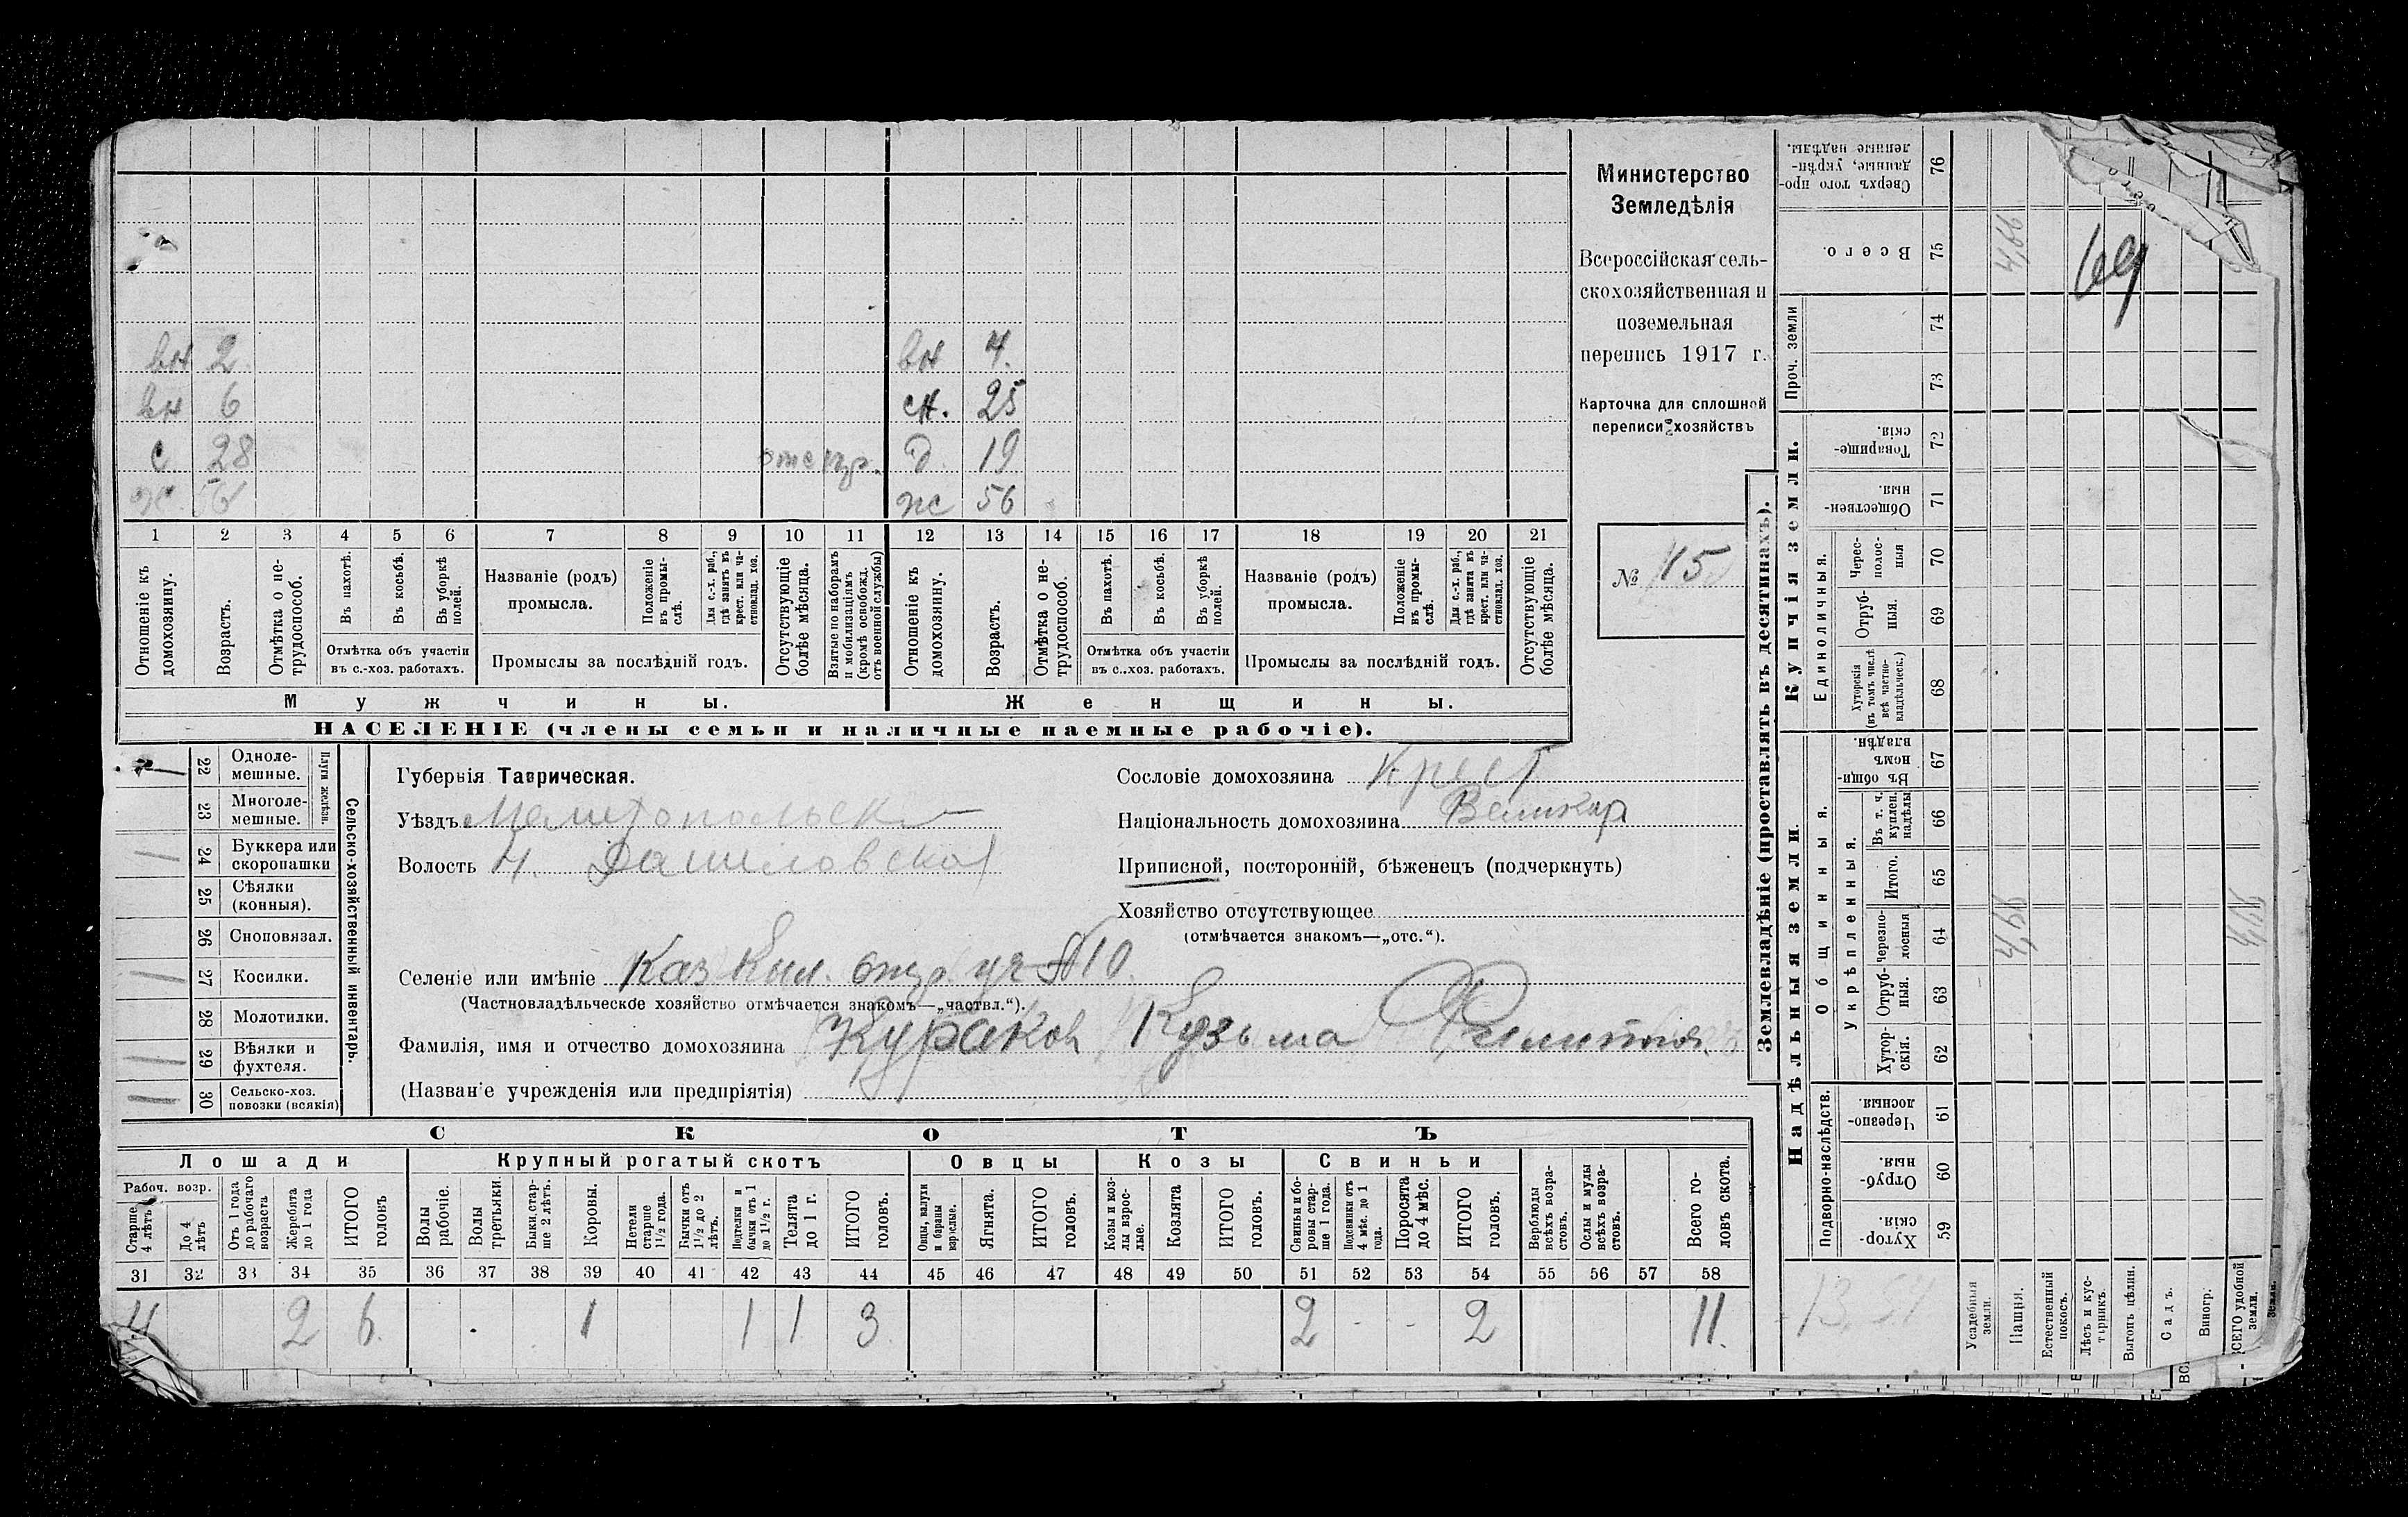 Министерство
Земледѣлія
Всероссійская сель-
скохозяйственная и
поземельная
перепись 1917 г.
Карточка для сплошной
переписи хозяйствъ
№ 15
вн 2 вн 4.
вн 6 сн. 25
с 28 Д 19
56 ж 56
1 2 3 4 5 6 7 8 9 10 11 12 13 14 15 16 17 18 19 20 21
Отношеніе къ домохозяину.
Возрастъ.
Отмѣтка о не-трудоспособ.
Въ пахотѣ.
Въ косьбѣ.
Въ уборкѣ полей.
Отмѣтка объ участіи
въ с.-хоз. работахъ.
Названіе (родъ)
промысла.
Положеніе въ промы-слѣ.
Для с.-х. раб., гдѣ занятъ въ крест. или ча-стновлад. хоз.
Промыслы за послѣдній годъ.
Отсутствующіе болѣе мѣсяца.
Взятые по наборамъ и мобилизаціямъ (кромѣ освобожд. отъ военной службы)
Отношеніе къ домохозяину.
Возрастъ.
Отмѣтка о не-трудоспособ.
Въ пахотѣ.
Въ косьбѣ.
Въ уборкѣ полей.
Отмѣтка объ участіи
въ с.-хоз. работахъ.
Названіе (родъ)
промысла.
Положеніе въ промы-слѣ.
Для с.-х. раб., гдѣ занята въ крест. или ча-стновлад. хоз.
Промыслы за послѣдній годъ.
Отсутствующіе болѣе мѣсяца.
Мужчины. Женщины.
НАСЕЛЕНІЕ (члены семьи и наличные наемные рабочіе).
22 Одноле-мешные.
23 Многоле-мешные.
Плуги желѣзн.
24 Буккера или скоропашки
25 Сѣялки (конныя).
26 Сноповязал.
27 Косилки.
28 Молотилки.
29 Вѣялки и фухтеля.
30 Сельско-хоз. повозки (всякія)
Сельско-хозяйственный инвентарь.
Губернія Таврическая.
Уѣздъ Мелитопольск
Волость Н. Даниловской
Селеніе или имѣніе Каз уч №10
(Частновладѣльческое хозяйство отмѣчается знакомъ—„частвл.“).
Фамилія, имя и отчество домохозяина Кузьма
(Названіе учрежденія или предпріятія)
Сословіе домохозяина Крест
Національность домохозяина Великор
Приписной, посторонній, бѣженецъ (подчеркнуть)
Хозяйство отсутствующее
(отмѣчается знакомъ—„отс.“).
СКОТЪ
Лошади Крупный рогатый скотъ Овцы Козы Свиньи
Рабоч. возр.
Старше 4 лѣтъ
До 4 лѣтъ
Отъ 1 года до рабочаго возраста
Жеребята до 1 года
ИТОГО головъ
Волы рабочіе.
Волы третьяки.
Быки стар-ше 2 лѣтъ.
Коровы.
Нетели старше 1½ года.
Бычки отъ 1½ до 2 лѣтъ.
Подтелки и бычки отъ 1 до 1½ г.
Телята до 1 г.
ИТОГО головъ.
Овцы, валухи и бараны взрослые.
Ягнята.
ИТОГО головъ.
Козы и коз-лы взрос-лые.
Козлята
ИТОГО головъ.
Свиньи и бо-ровы стар-ше 1 года.
Подсвинки отъ 4 мѣс. до 1 года.
Поросята до 4 мѣс.
ИТОГО головъ.
Верблюды всѣхъ возра-стовъ.
Ослы и мулы всѣхъ возра-стовъ.
Всего го-ловъ скота.
31 32 33 34 35 36 37 38 39 40 41 42 43 44 45 46 47 48 49 50 51 52 53 54 55 56 57 58
4 2 6. 1 1 1 3 2 - - 2 11.
Землевладѣніе (проставлять въ десятинахъ).
Купчія земли.
Надѣльныя земли
Сверхъ того про-данные, укрѣп-ленные надѣлы. 76
Всего. 75
Проч. земли 74 73
Товарище-скія. 72
Обществен-ныя 71
Единоличныя.
Черес-полос-ныя 70
Отруб-ныя. 69
Хуторскія (въ томъ числѣ всѣ частно-владѣльческ.) 68
Общинныя.
Въ общин-номъ владѣн. 67
Укрѣпленныя.
Въ т. ч. куплен. надѣлы 66
Итого. 65
Черезпо-лосныя 64
Отруб-ныя. 63
Хутор-скія. 62
Подворно-наслѣдств.
Черезпо-лосныя. 61
Отруб-ныя. 60
Хутор-скія. 59
Усадебныя земли.
Пашня.
Естественный покосъ.
Лѣсъ и кус-тарникъ.
Выгонъ цѣлин.
Садъ.
Виногр.
ВСЕГО удобной земли.
69